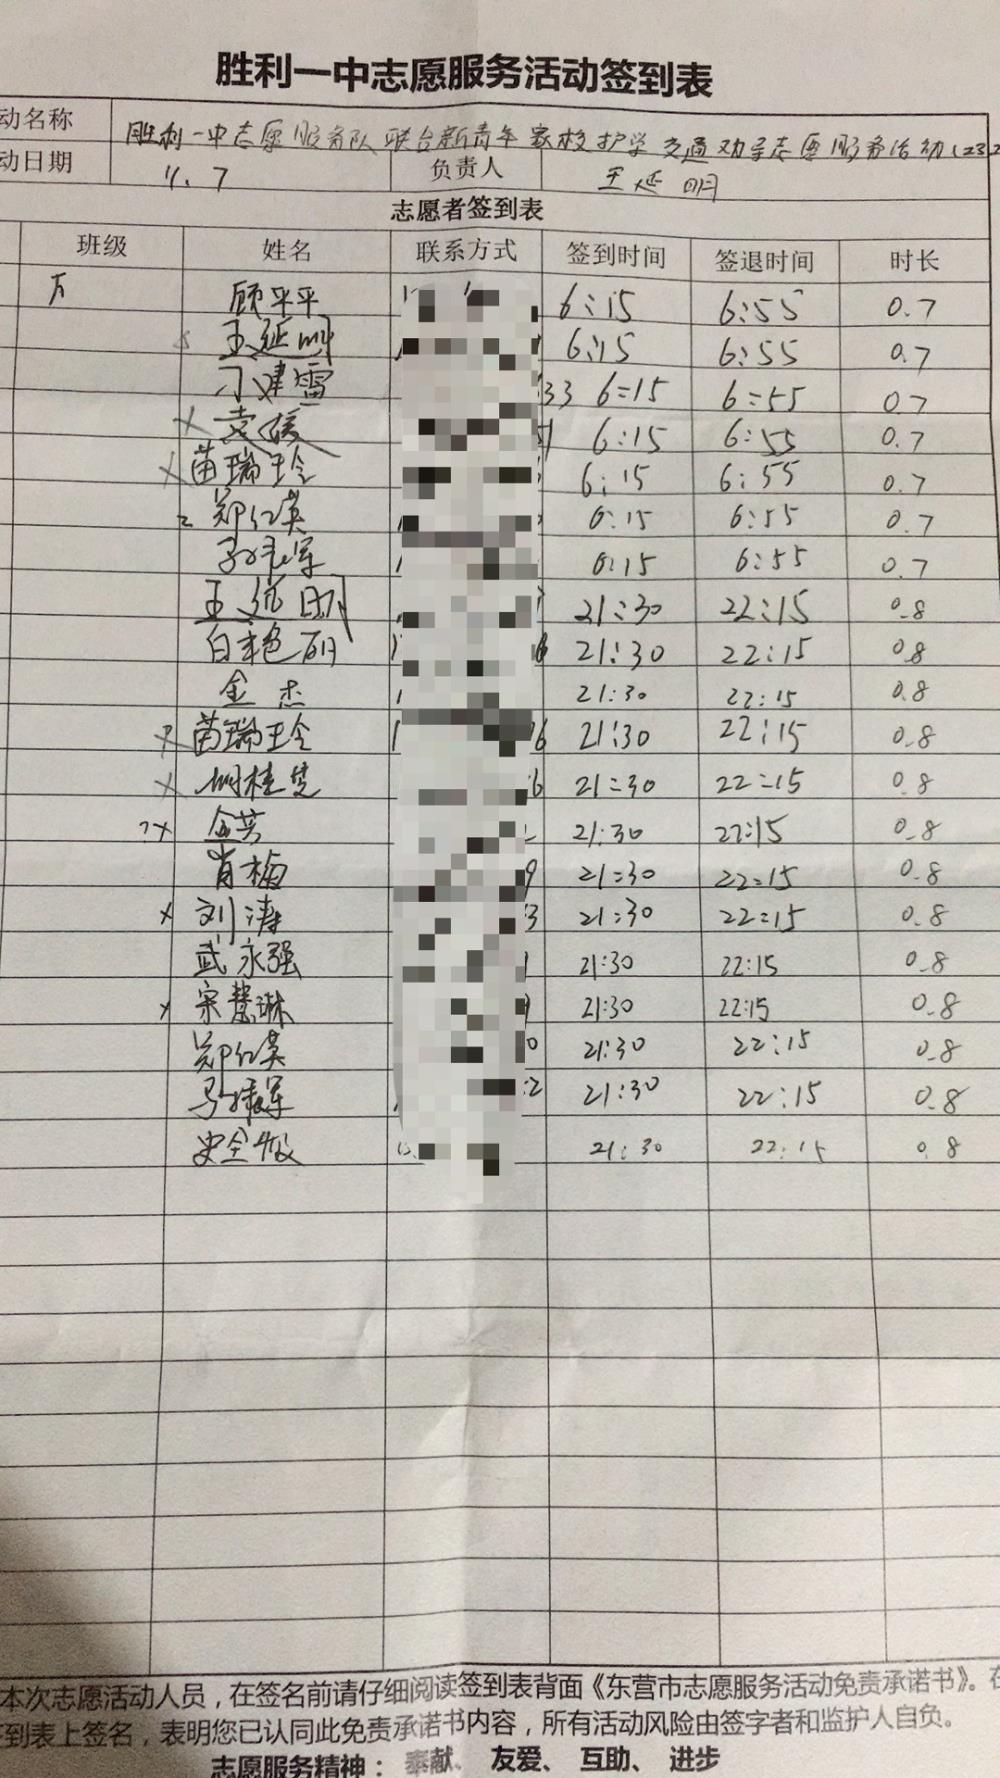 胜利一中志愿服务活动签到表
动名称 胜利一中志愿服务队联合新青年家校护学交通劝导志愿服务活动(232
动日期 11.7 负责人 王延明
志愿者签到表
班级 姓名 联系方式 签到时间 签退时间 时长
顾平平 6:15 6:55 0.7
王延明 6:15 6:55 0.7
刁建雷 33 6:15 6:55 0.7
6:15 6:55 0.7
x 苗瑞玲 6:15 6:55 0.7
郑红英 6:15 6:55 0.7
6:15 6:55 0.7
王延明 21:30 22:15 0.8
21:30 22:15 0.8
金杰 21:30 22:15 0.8
苗瑞玲 6 21:30 22:15 0.8
x 桂芝 6 21:30 22:15 0.8
?x 金芳 21:30 22:15 0.8
肖梅 9 21:30 22:15 0.8
x 刘涛 3 21:30 22:15 0.8
武永强 21:30 22:15 0.8
x 宋慧琳 21:30 22:15 0.8
郑红英 0 21:30 22:15 0.8
2 21:30 22:15 0.8
史全 21:30 22:15 0.8
本次志愿活动人员，在签名前请仔细阅读签到表背面《东营市志愿服务活动免责承诺书》。在
到表上签名，表明您已认同此免责承诺书内容，所有活动风险由签字者和监护人自负。
志愿服务精神：奉献、友爱、互助、进步